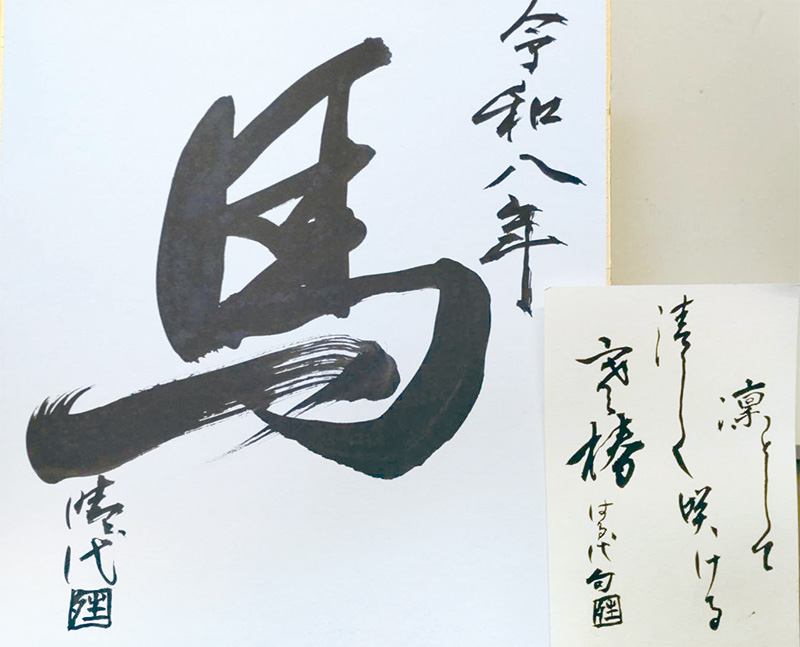 令和八年
馬
晴代
凛として
清しく咲ける
寒椿
はる代 句